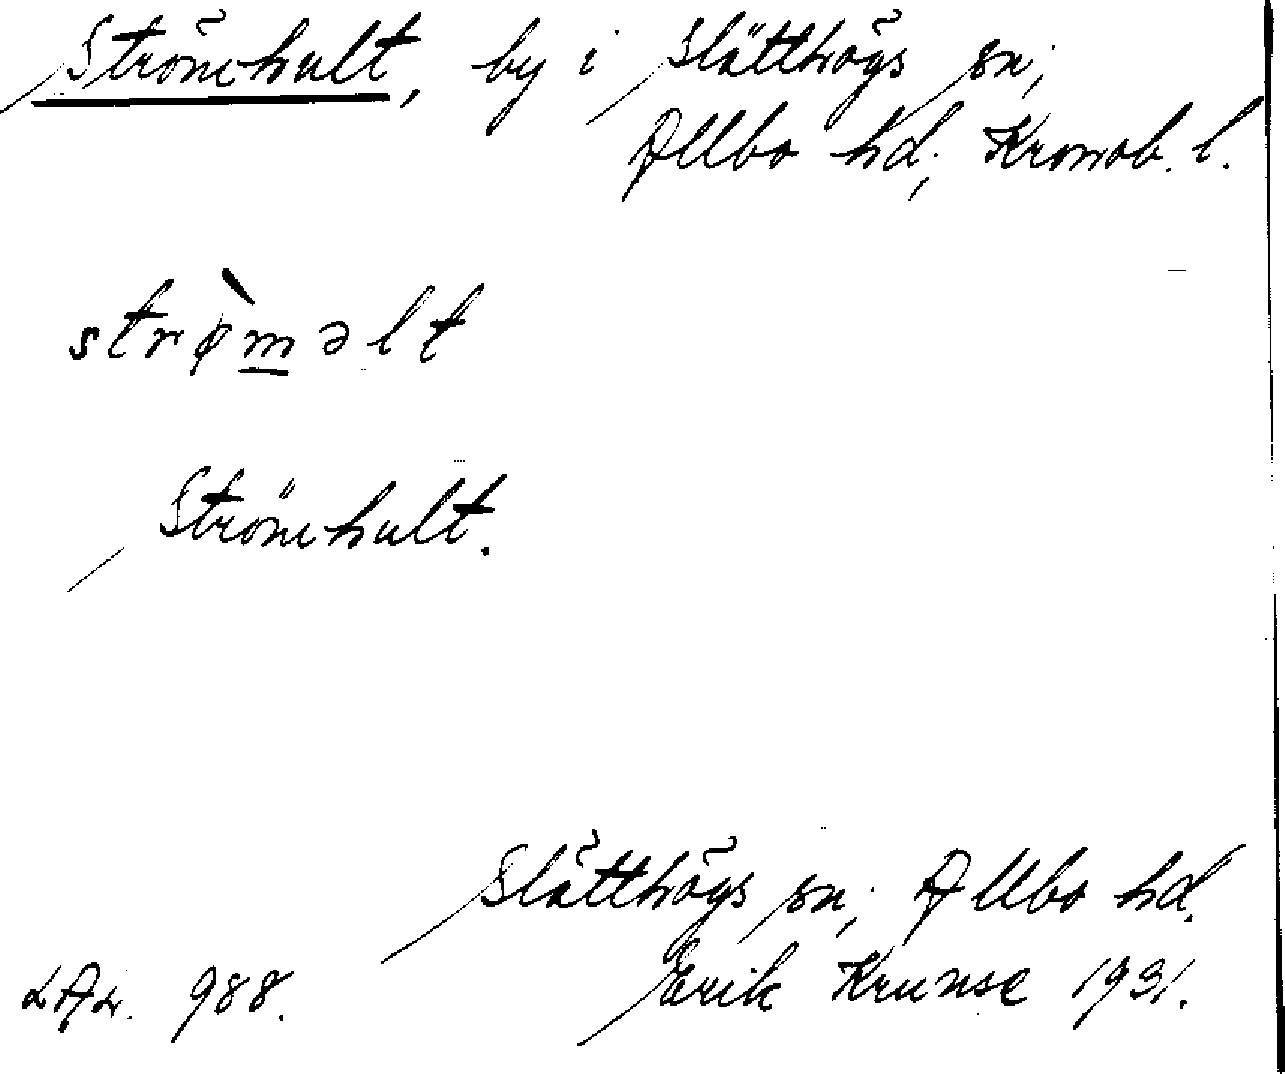 Strömhult, by i Slätthögs sn;
Allbo hd; Kronob. l.
strø̀m̲əlt
Strömhult.
Slätthögs sn; Allbo hd.
LAL. 988.
Erik Krunse 1931.